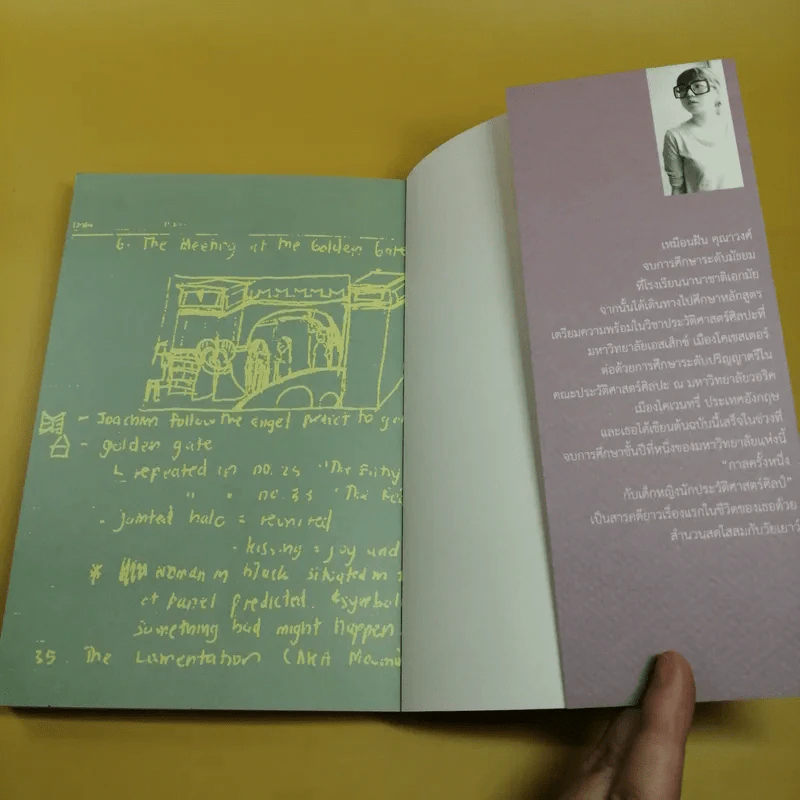 6. The Meeting at the Golden Gate
- Joachim follow the angel predict to go
- golden gate
repeated in no. 25 "The Entry
" " no. 33 "The
- Jointed halo = reunited
- kissing = joy and
* woman in black situated in
of panel predicted. symbol
something bad might happen
35. The Lamentation (AKA Mourni
เหมือนฝัน คุณาวงศ์
จบการศึกษาระดับมัธยม
ที่โรงเรียนนานาชาติเอกมัย
จากนั้นได้เดินทางไปศึกษาหลักสูตร
เตรียมความพร้อมในวิชาประวัติศาสตร์ศิลปะที่
มหาวิทยาลัยเอสเส็กซ์ เมืองโคเชสเตอร์
ต่อด้วยการศึกษาระดับปริญญาตรีใน
คณะประวัติศาสตร์ศิลปะ ณ มหาวิทยาลัยวอริค
เมืองโคเวนทรี่ ประเทศอังกฤษ
และเธอได้เขียนต้นฉบับนี้เสร็จในช่วงที่
จบการศึกษาชั้นปีที่หนึ่งของมหาวิทยาลัยแห่งนี้
"กาลครั้งหนึ่ง
กับเด็กหญิงนักประวัติศาสตร์ศิลป์"
เป็นสารคดียาวเรื่องแรกในชีวิตของเธอด้วย
สำนวนสดใสสมกับวัยเยาว์